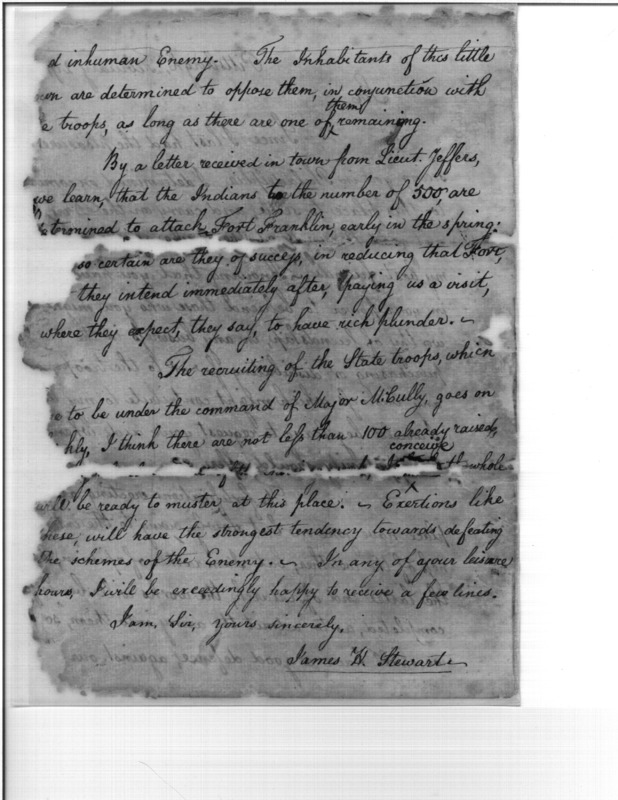 d inhuman Enemy. The Inhabitants of this little
wn are determined to oppose them, in conjunction with
e troops, as long as there are one of them remaining.
By a letter received in town from Lieut. Jeffers,
we learn, that the Indians to the number of 500, are
termined to attack Fort Franklin, early in the spring:
so certain are they of success, in reducing that Fort,
they intend immediately after, paying us a visit,
where they expect, they say, to have rich plunder.
The recruiting of the State troops, which
e to be under the command of Major McCully, goes on
hly, I think there are not less than 100 already raised,
conceive
whole
will be ready to muster at this place. Exertions like
hese, will have the strongest tendency towards defeating
the schemes of the Enemy. In any of your leisure
hours, I will be exceedingly happy to receive a few lines.
I am, Sir, yours sincerely,
James H. Stewart